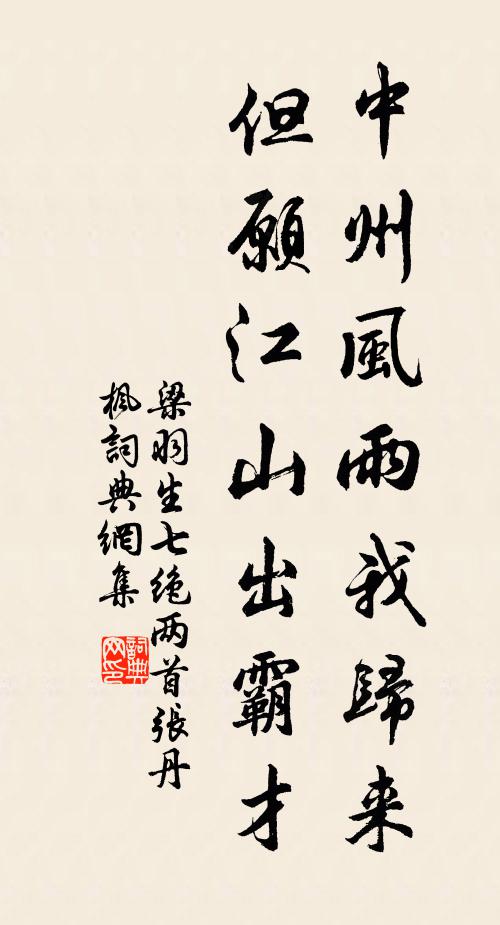 中州風雨我歸来
但願江山出霸才
梁羽生七绝两首張丹
楓詞典網集
詞典网印